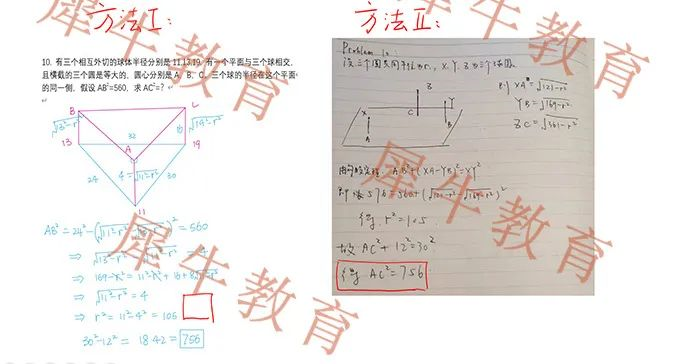 方法Ⅰ:
方法Ⅱ:
10. 有三个相互外切的球体半径分别是 11,13,19. 有一个平面与三球相交,
且横截的三个圆是等大的, 圆心分别是 A、B、C, 三个球的半径在这个平面
的同一侧, 假设 AB²=560, 求 AC²=?
B
L
√13²-r²
√19²-r²
32
13
19
A
24
4=√11²-r²
30
11
AB² = 24² - (√11²-r² - √13²-r²)² = 560
⇒ √13²-r² - √11²-r² = 4
⇒ 169-r² = 11²-r² + 16 + 8√11²-r²
⇒ √11²-r² = 4
⇒ r² = 11²-4² = 105
30²-12² = 18·42 = 756
Problem 10:
设三个圆共同半径为r, X, Y, Z为三个球圆
则 XA = √121-r²
YB = √169-r²
ZC = √361-r²
X
Z
Y
A
C
B
由勾股定理: AB²+(XA-YB)²=XY²
即 576=560+(√121-r²-√169-r²)²
得 r²=105
故 AC²+12²=30²
得 AC²=756
犀牛教育
犀牛教育
犀牛教育
犀牛教育